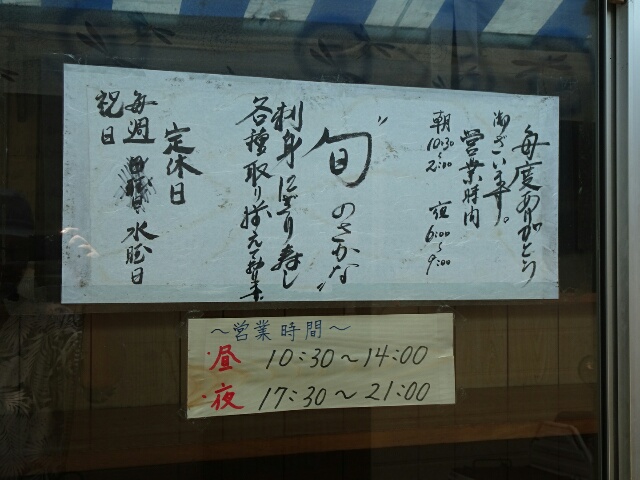 毎度ありがとう
御ざいます。
営業時内
朝10:30〜2:00 夜6:00〜9:00
"旬のさかな"
刺身にぎり寿し
各種取り揃えて
定休日
毎週 水曜日
祝日
〜営業時間〜
・昼 10:30〜14:00
・夜 17:30〜21:00